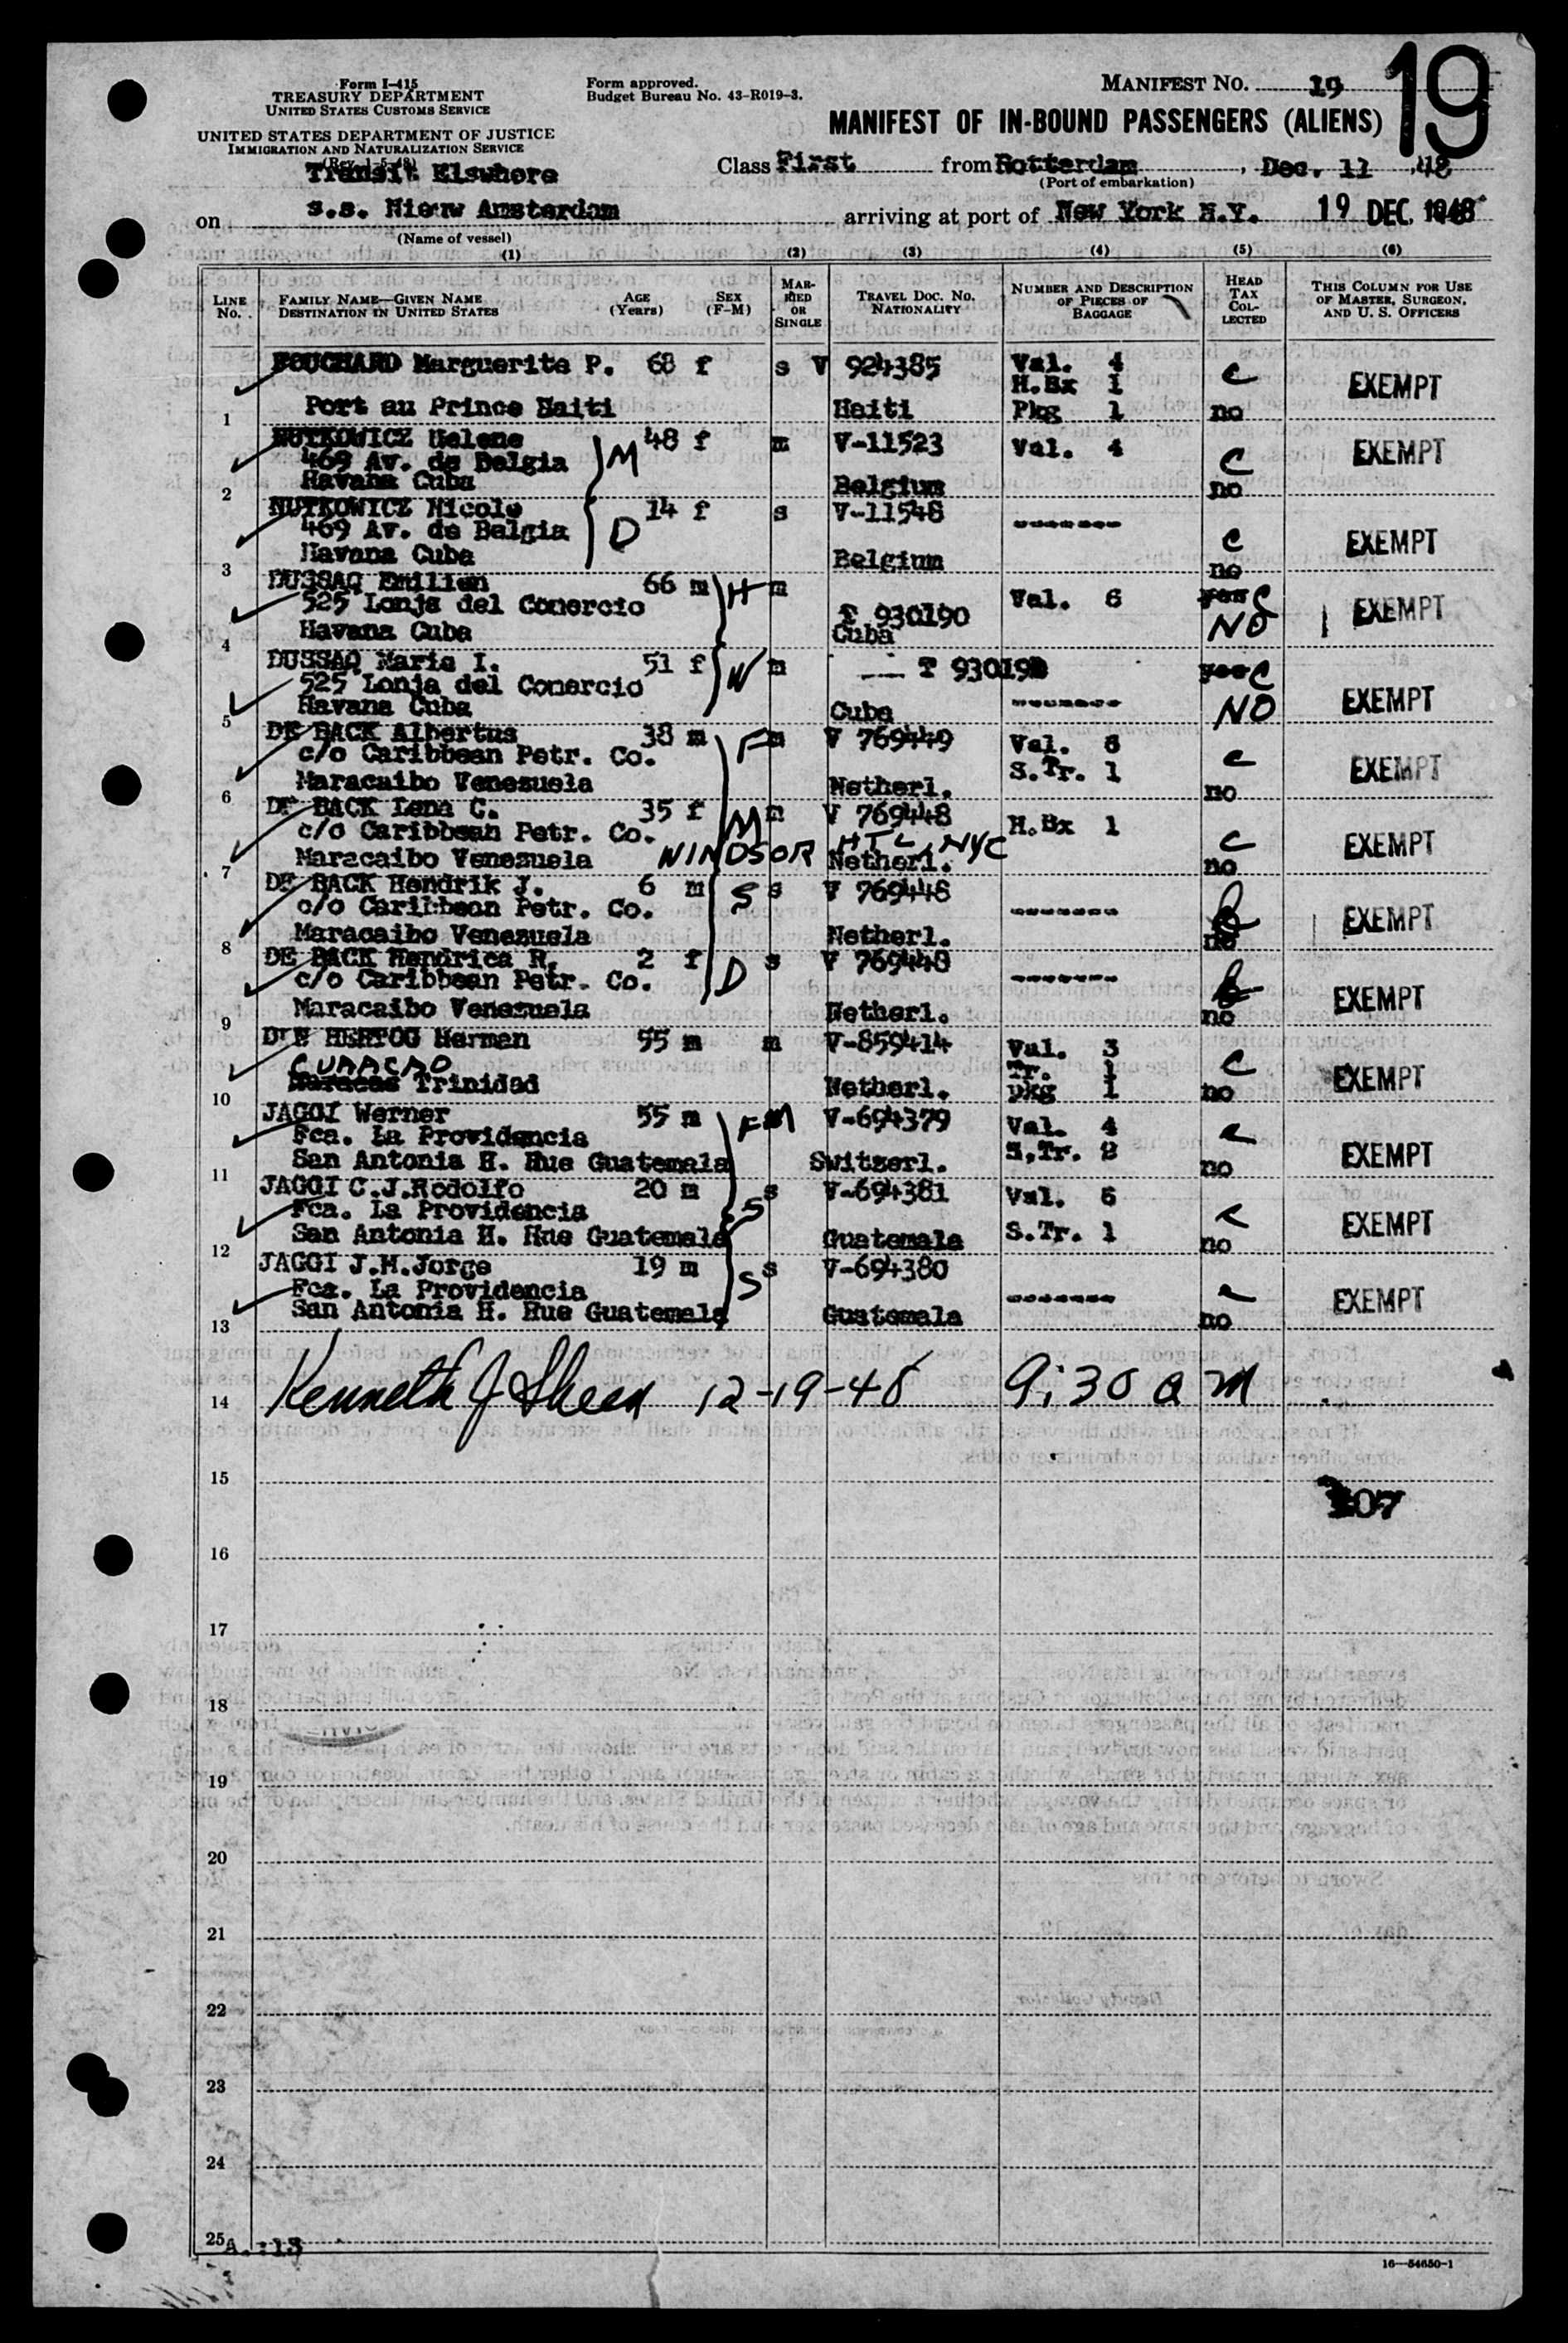 Form I-415
TREASURY DEPARTMENT
UNITED STATES CUSTOMS SERVICE
UNITED STATES DEPARTMENT OF JUSTICE
IMMIGRATION AND NATURALIZATION SERVICE
(Rev. 1-5-48)
Transit Elswhere
Form approved.
Budget Bureau No. 43-R019-3.
MANIFEST NO. 19
19
MANIFEST OF IN-BOUND PASSENGERS (ALIENS)
Class First from Rotterdam, Dec. 11, 48
(Port of embarkation)
on s.s. Nieuw Amsterdam arriving at port of New York N.Y. 19 DEC. 1948
(Name of vessel)
(1) (2) (3) (4) (5) (6)
LINE No. FAMILY NAME—GIVEN NAME DESTINATION IN UNITED STATES AGE (Years) SEX (F-M) MARRIED OR SINGLE TRAVEL DOC. NO. NATIONALITY NUMBER AND DESCRIPTION OF PIECES OF BAGGAGE HEAD TAX COLLECTED THIS COLUMN FOR USE OF MASTER, SURGEON, AND U. S. OFFICERS
BOUCHARD Marguerite P. 68 f s V 924385 Val. 4 C EXEMPT
H.Bx 1
1 Port au Prince Haiti Haiti Pkg 1 no
NUTKOWICZ Helene 48 f m V-11523 Val. 4 C EXEMPT
469 Av. de Belgia M
2 Havana Cuba Belgium no
NUTKOWICZ Nicole 14 f s V-11548 -------- C EXEMPT
469 Av. de Belgia D
3 Havana Cuba Belgium no
DUSSAQ Emilien 66 m H m Val. 6 yes C EXEMPT
525 Lonja del Comercio T 930190
4 Havana Cuba Cuba NO
DUSSAQ Maria I. 51 f W m T 93019 yes C EXEMPT
525 Lonja del Comercio
5 Havana Cuba Cuba -------- NO
DE BACK Albertus 38 m F m V 769449 Val. 6 C EXEMPT
c/o Caribbean Petr. Co. S.Tr. 1
6 Maracaibo Venezuela Netherl. no
DE BACK Lena C. 35 f M m V 769448 H.Bx 1 C EXEMPT
c/o Caribbean Petr. Co.
7 Maracaibo Venezuela WINDSOR HTL, NYC Netherl. no
DE BACK Hendrik J. 6 m S s V 769448 -------- EXEMPT
c/o Caribbean Petr. Co.
8 Maracaibo Venezuela Netherl. no
DE BACK Hendrica R. 2 f D s V 769448 -------- EXEMPT
c/o Caribbean Petr. Co.
9 Maracaibo Venezuela Netherl. no
DEN HERTOG Herman 55 m m V-859414 Val. 3 C EXEMPT
CURACAO Tr. 1
10 Trinidad Netherl. pkg 1 no
JAGGI Werner 55 m F M V-694379 Val. 4 C EXEMPT
Fca. La Providencia S.Tr. 2
11 San Antonia H. Hue Guatemala Switzerl. no
JAGGI C.J.Rodolfo 20 m S s V-694381 Val. 6 C EXEMPT
Fca. La Providencia
12 San Antonia H. Hue Guatemala Guatemala S.Tr. 1 no
JAGGI J.M.Jorge 19 m S s V-694380 -------- C EXEMPT
Fca. La Providencia
13 San Antonia H. Hue Guatemala Guatemala no
14 Kenneth J Sheen 12-19-48 9:30 a m
15
07
16
17
18
19
20
21
22
23
24
25 A. :13
16—54650-1